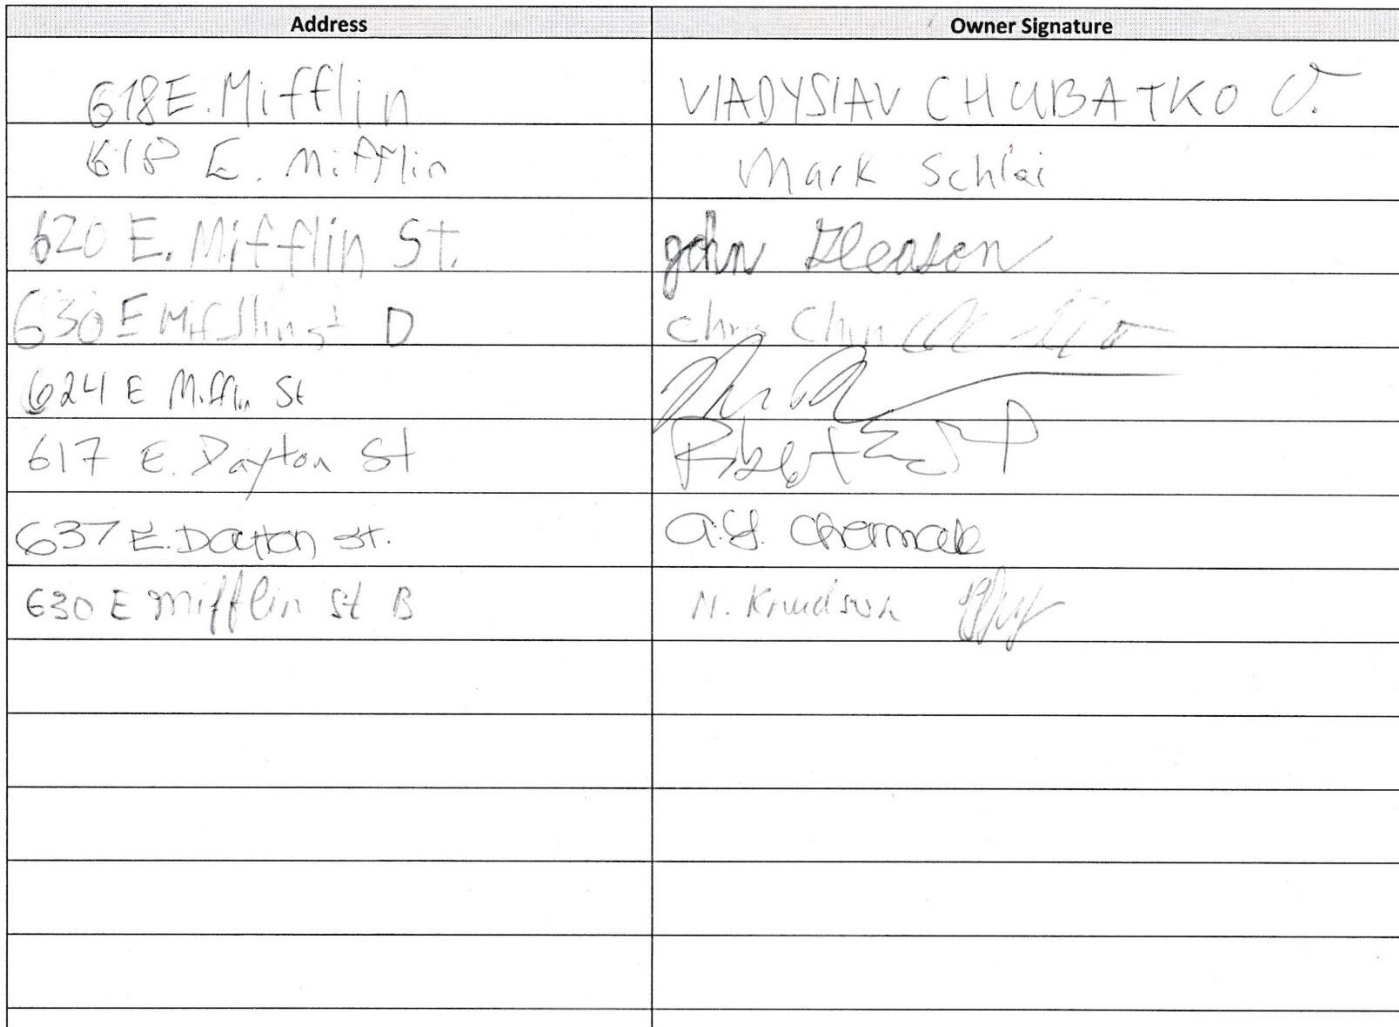 Address Owner Signature
618 E. Mifflin VlADYSlAV CHUBATKO V.
618 E. Mifflin Mark Schlei
620 E. Mifflin St. john Gleason
630 E Mifflin St D Chris
624 E Mifflin St
617 E. Dayton St Robert
637 E. Dayton St. a.J. Chermak
630 E mifflin St B M. Knudson